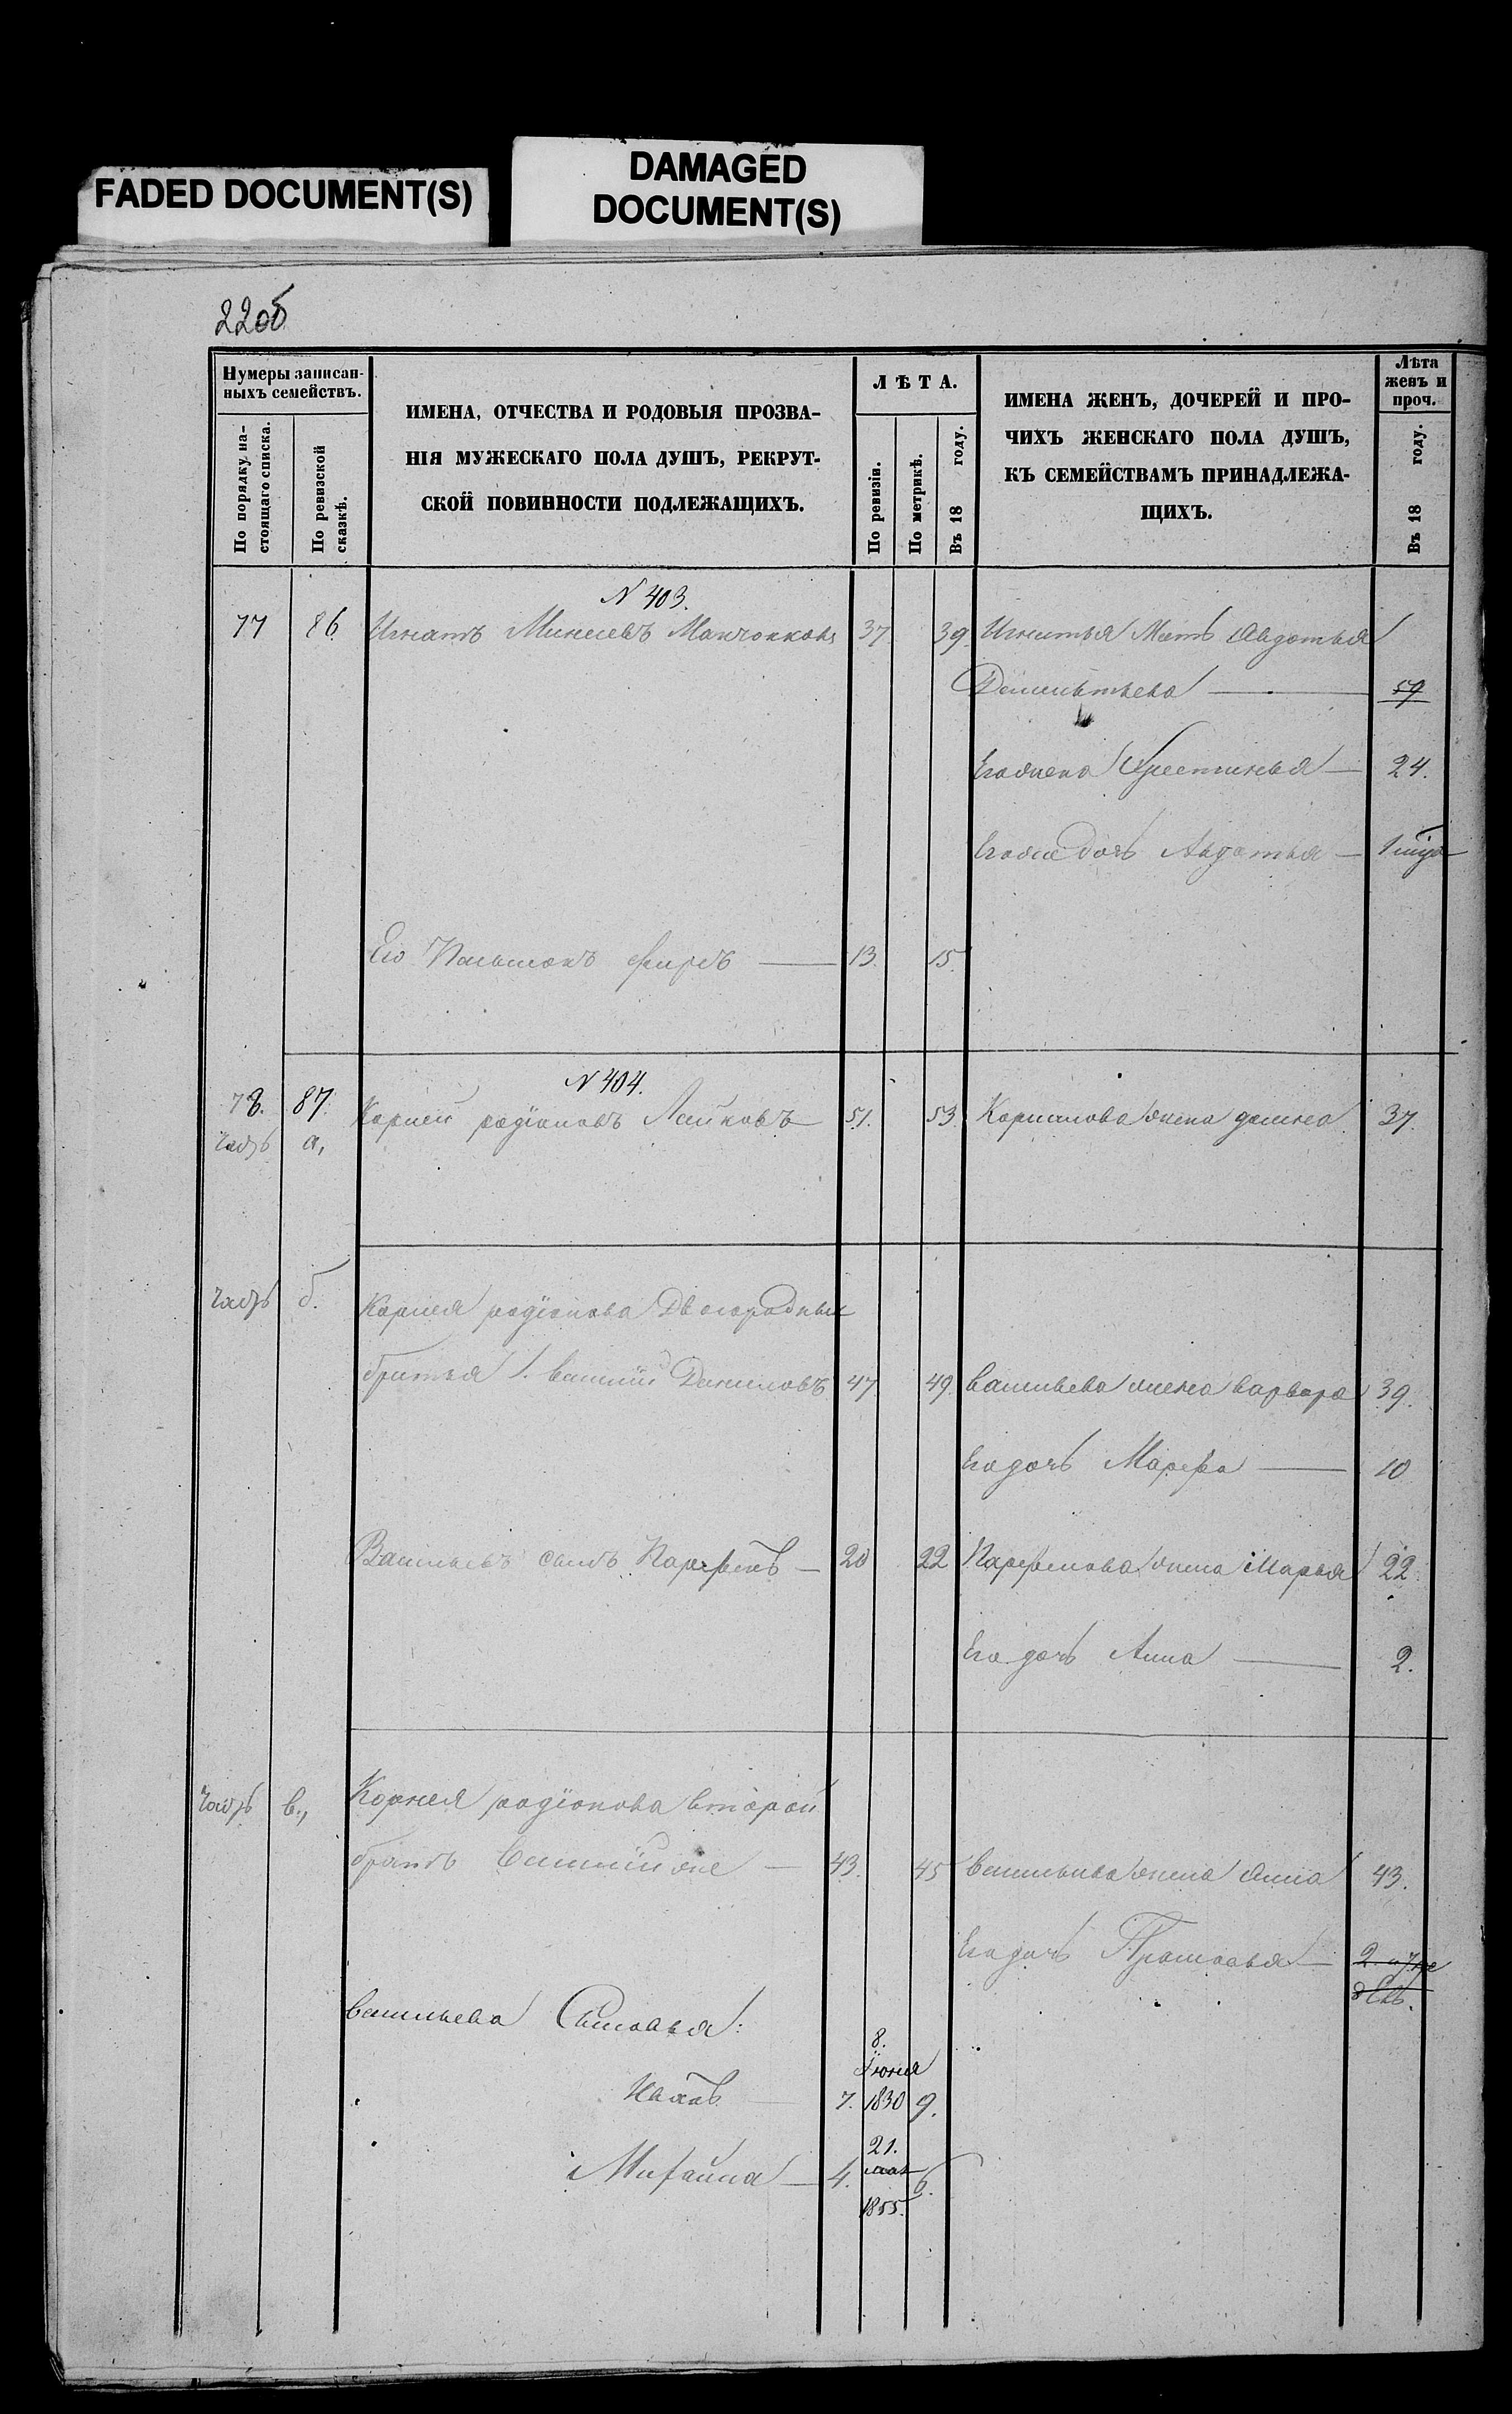 FADED DOCUMENT(S)
DAMAGED
DOCUMENT(S)
22об
Нумеры записан-
ныхъ семействъ.
По порядку на-
стоящаго списка.
По ревизской
сказкѣ.
ИМЕНА, ОТЧЕСТВА И РОДОВЫЯ ПРОЗВА-
НІЯ МУЖЕСКАГО ПОЛА ДУШЪ, РЕКРУТ-
СКОЙ ПОВИННОСТИ ПОДЛЕЖАЩИХЪ.
ЛѢТА.
По ревизіи.
По метрикѣ.
Въ 18 году.
ИМЕНА ЖЕНЪ, ДОЧЕРЕЙ И ПРО-
ЧИХЪ ЖЕНСКАГО ПОЛА ДУШЪ,
КЪ СЕМЕЙСТВАМЪ ПРИНАДЛЕЖА-
ЩИХЪ.
Лѣта
женъ и
проч.
Въ 18 году.
N 403.
77 86 Игнатъ 37 39 Игнатья Мать Авдотья
Дементьева 59
Его жена 24.
Его же дочь Авдотья 1
Его 13. 15.
N 404.
78. 87. Корней родіоновъ Лайковъ 51. 53. жена домна 37.
часть а,
часть б. Корнея родіонова Двоюродныи
братья 1. Василій Даниловъ 47 49. Васильева жена варвара 39.
Его дочь Марфа 10
Васильевъ сынъ Парфенъ 20 22 Парфенова жена Марья 22
Его дочь Анна 2.
часть в., Корнея родіонова второй
братъ Василій же 43. 45 Васильева жена Анна 43.
Его дочь Прасковья 2
Васильева Сыновья:
8.
Іюня
Иванъ 7. 1830 9.
21.
Михаила 4. 6.
1855.